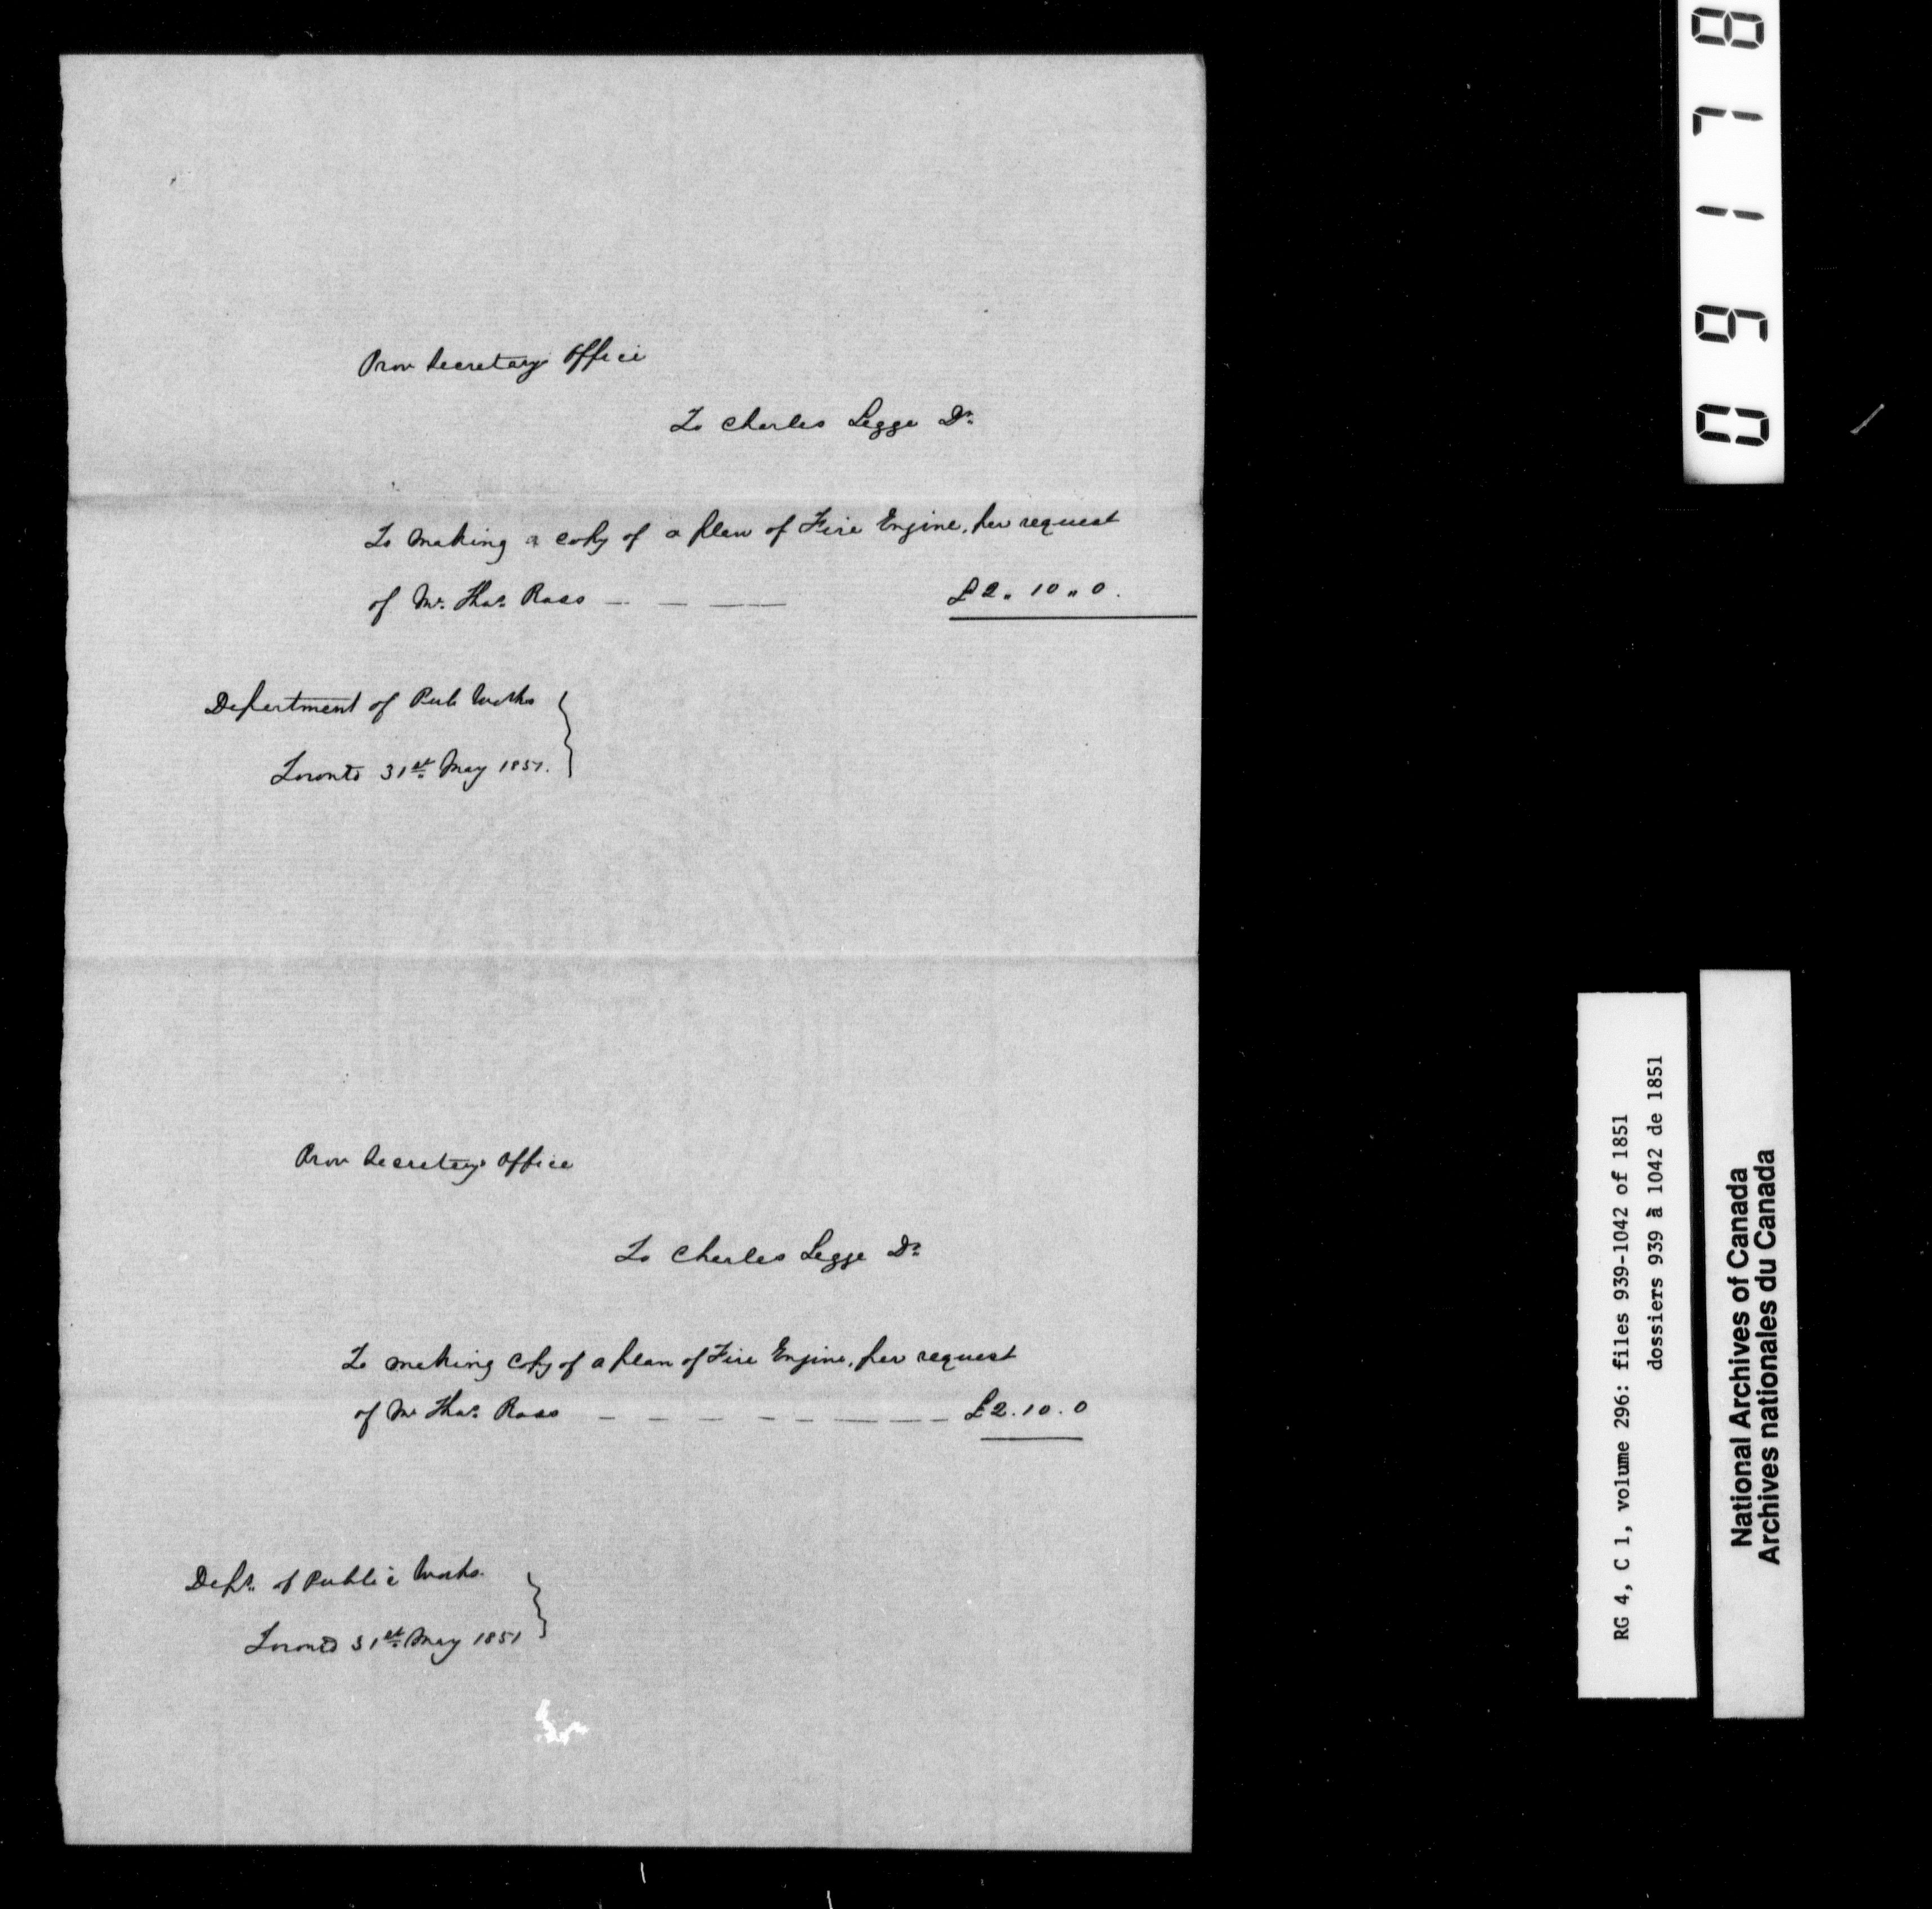 Prov Secretarys Office
To Charles Legge Dr.
To making a copy of a plan of Fire Engine, per request
of Mr. Thos. Ross — — —— £2 " 10 " 0.
Department of Pub Works
Toronto 31st. May 1851.
Prov Secretarys Office
To Charles Legge Dr.
To making copy of a plan of Fire Engine, per request
of Mr Thos. Ross — — — — — — — — £2.10.0
Dept. of Public Works.
Toronto 31st. May 1851
09178
RG 4, C 1, volume 296: files 939-1042 of 1851
dossiers 939 à 1042 de 1851
National Archives of Canada
Archives nationales du Canada